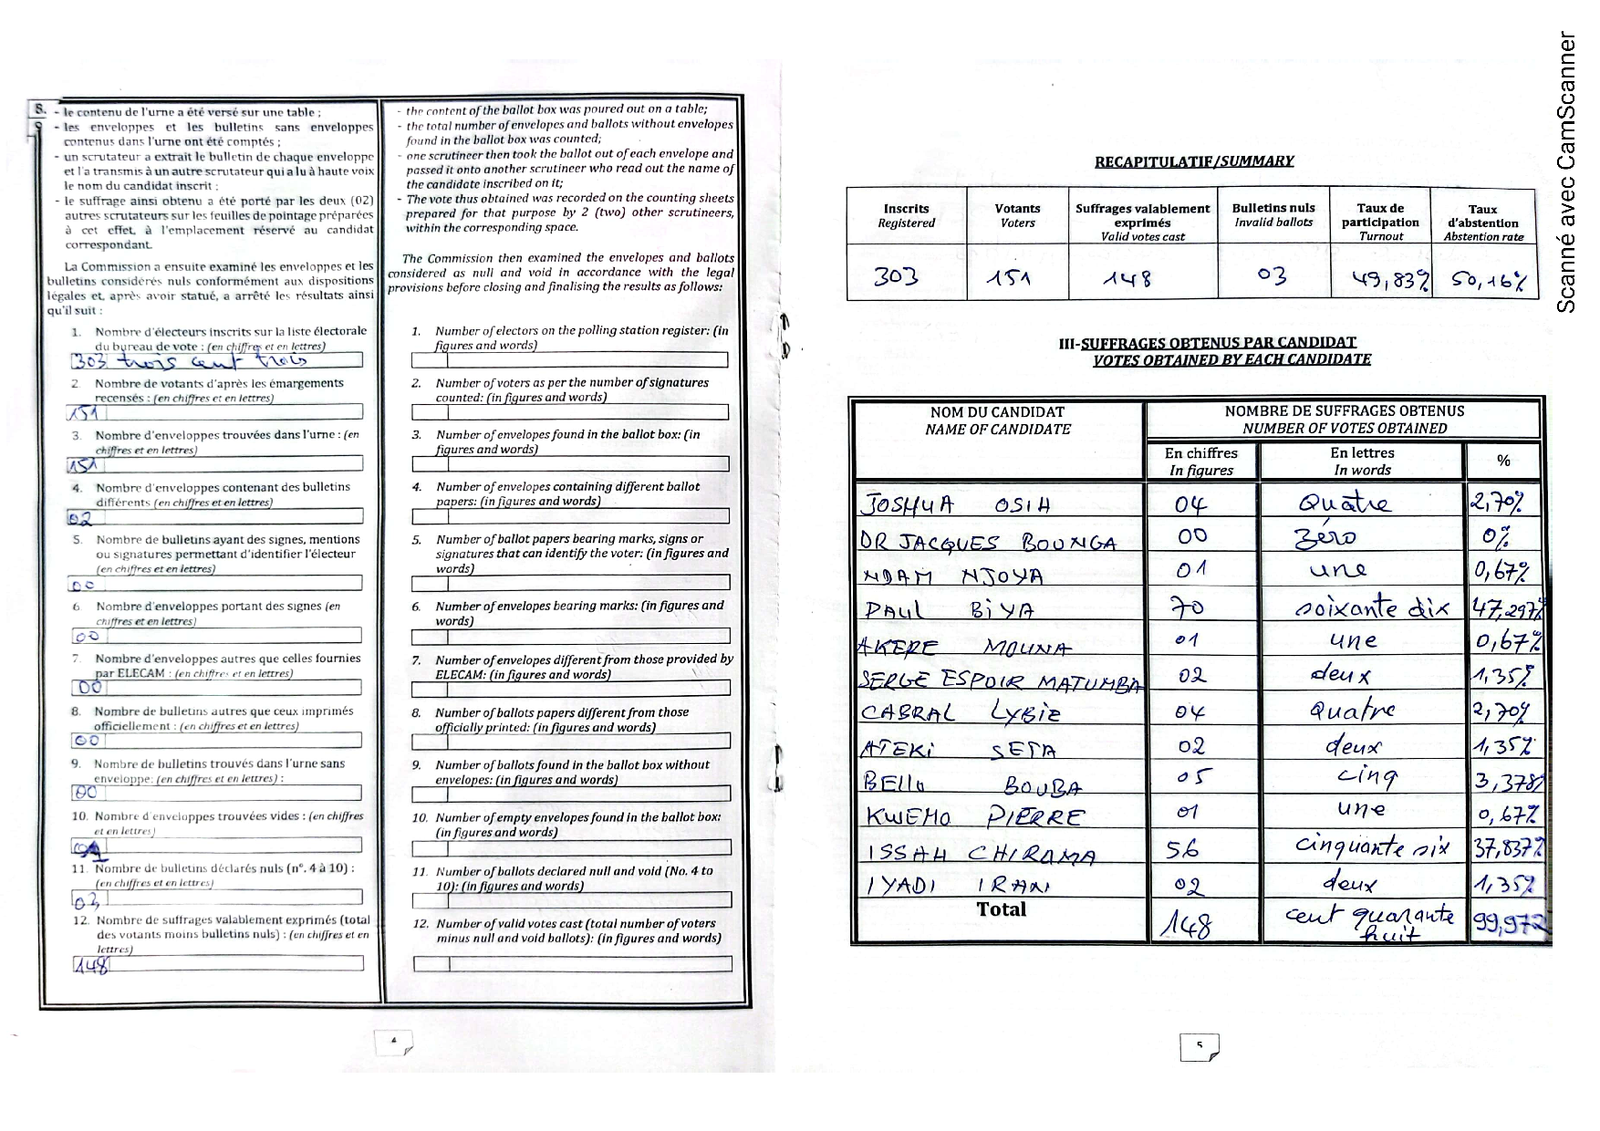 8.
9
- le contenu de l'urne a été versé sur une table ;
- les enveloppes et les bulletins sans enveloppes
contenus dans l'urne ont été comptés ;
- un scrutateur a extrait le bulletin de chaque enveloppe
et l'a transmis à un autre scrutateur qui a lu à haute voix
le nom du candidat inscrit ;
- le suffrage ainsi obtenu a été porté par les deux (02)
autres scrutateurs sur les feuilles de pointage préparées
à cet effet, à l'emplacement réservé au candidat
correspondant.
La Commission a ensuite examiné les enveloppes et les
bulletins considérés nuls conformément aux dispositions
légales et, après avoir statué, a arrêté les résultats ainsi
qu'il suit :
1. Nombre d'électeurs inscrits sur la liste électorale
du bureau de vote : (en chiffres et en lettres)
303 trois cent trois
2. Nombre de votants d'après les émargements
recensés : (en chiffres et en lettres)
151
3. Nombre d'enveloppes trouvées dans l'urne : (en
chiffres et en lettres)
151
4. Nombre d'enveloppes contenant des bulletins
différents (en chiffres et en lettres)
02
5. Nombre de bulletins ayant des signes, mentions
ou signatures permettant d'identifier l'électeur
(en chiffres et en lettres)
00
6. Nombre d'enveloppes portant des signes (en
chiffres et en lettres)
00
7. Nombre d'enveloppes autres que celles fournies
par ELECAM : (en chiffres et en lettres)
00
8. Nombre de bulletins autres que ceux imprimés
officiellement : (en chiffres et en lettres)
00
9. Nombre de bulletins trouvés dans l'urne sans
enveloppe: (en chiffres et en lettres) :
00
10. Nombre d'enveloppes trouvées vides : (en chiffres
et en lettres)
11. Nombre de bulletins déclarés nuls (n°. 4 à 10) :
(en chiffres et en lettres)
03
12. Nombre de suffrages valablement exprimés (total
des votants moins bulletins nuls) : (en chiffres et en
lettres)
148
- the content of the ballot box was poured out on a table;
- the total number of envelopes and ballots without envelopes
found in the ballot box was counted;
- one scrutineer then took the ballot out of each envelope and
passed it onto another scrutineer who read out the name of
the candidate inscribed on it;
- The vote thus obtained was recorded on the counting sheets
prepared for that purpose by 2 (two) other scrutineers,
within the corresponding space.
The Commission then examined the envelopes and ballots
considered as null and void in accordance with the legal
provisions before closing and finalising the results as follows:
1. Number of electors on the polling station register: (in
figures and words)
2. Number of voters as per the number of signatures
counted: (in figures and words)
3. Number of envelopes found in the ballot box: (in
figures and words)
4. Number of envelopes containing different ballot
papers: (in figures and words)
5. Number of ballot papers bearing marks, signs or
signatures that can identify the voter: (in figures and
words)
6. Number of envelopes bearing marks: (in figures and
words)
7. Number of envelopes different from those provided by
ELECAM: (in figures and words)
8. Number of ballots papers different from those
officially printed: (in figures and words)
9. Number of ballots found in the ballot box without
envelopes: (in figures and words)
10. Number of empty envelopes found in the ballot box:
(in figures and words)
11. Number of ballots declared null and void (No. 4 to
10): (in figures and words)
12. Number of valid votes cast (total number of voters
minus null and void ballots): (in figures and words)
4
RECAPITULATIF/SUMMARY
Inscrits Votants Suffrages valablement Bulletins nuls Taux de Taux
Registered Voters exprimés Invalid ballots participation d'abstention
Valid votes cast Turnout Abstention rate
303 151 148 03 49,83% 50,16%
III-SUFFRAGES OBTENUS PAR CANDIDAT
VOTES OBTAINED BY EACH CANDIDATE
NOM DU CANDIDAT NOMBRE DE SUFFRAGES OBTENUS
NAME OF CANDIDATE NUMBER OF VOTES OBTAINED
En chiffres En lettres %
In figures In words
JOSHUA OSIH 04 Quatre 2,70%
DR JACQUES BOUNGA 00 Zéro 0%
NDAM NJOYA 01 une 0,67%
PAUL BIYA 70 soixante dix 47,297%
AKERE MOUNA 01 une 0,67%
SERGE ESPOIR MATUMBA 02 deux 1,35%
CABRAL LYBIE 04 Quatre 2,70%
ATEKI SETA 02 deux 1,35%
BELLO BOUBA 05 cinq 3,378%
KWEMO PIERRE 01 une 0,67%
ISSAH CHIRAMA 56 cinquante six 37,837%
IYADI IRANI 02 deux 1,35%
Total 148 cent quarante huit 99,972
5
Scanné avec CamScanner